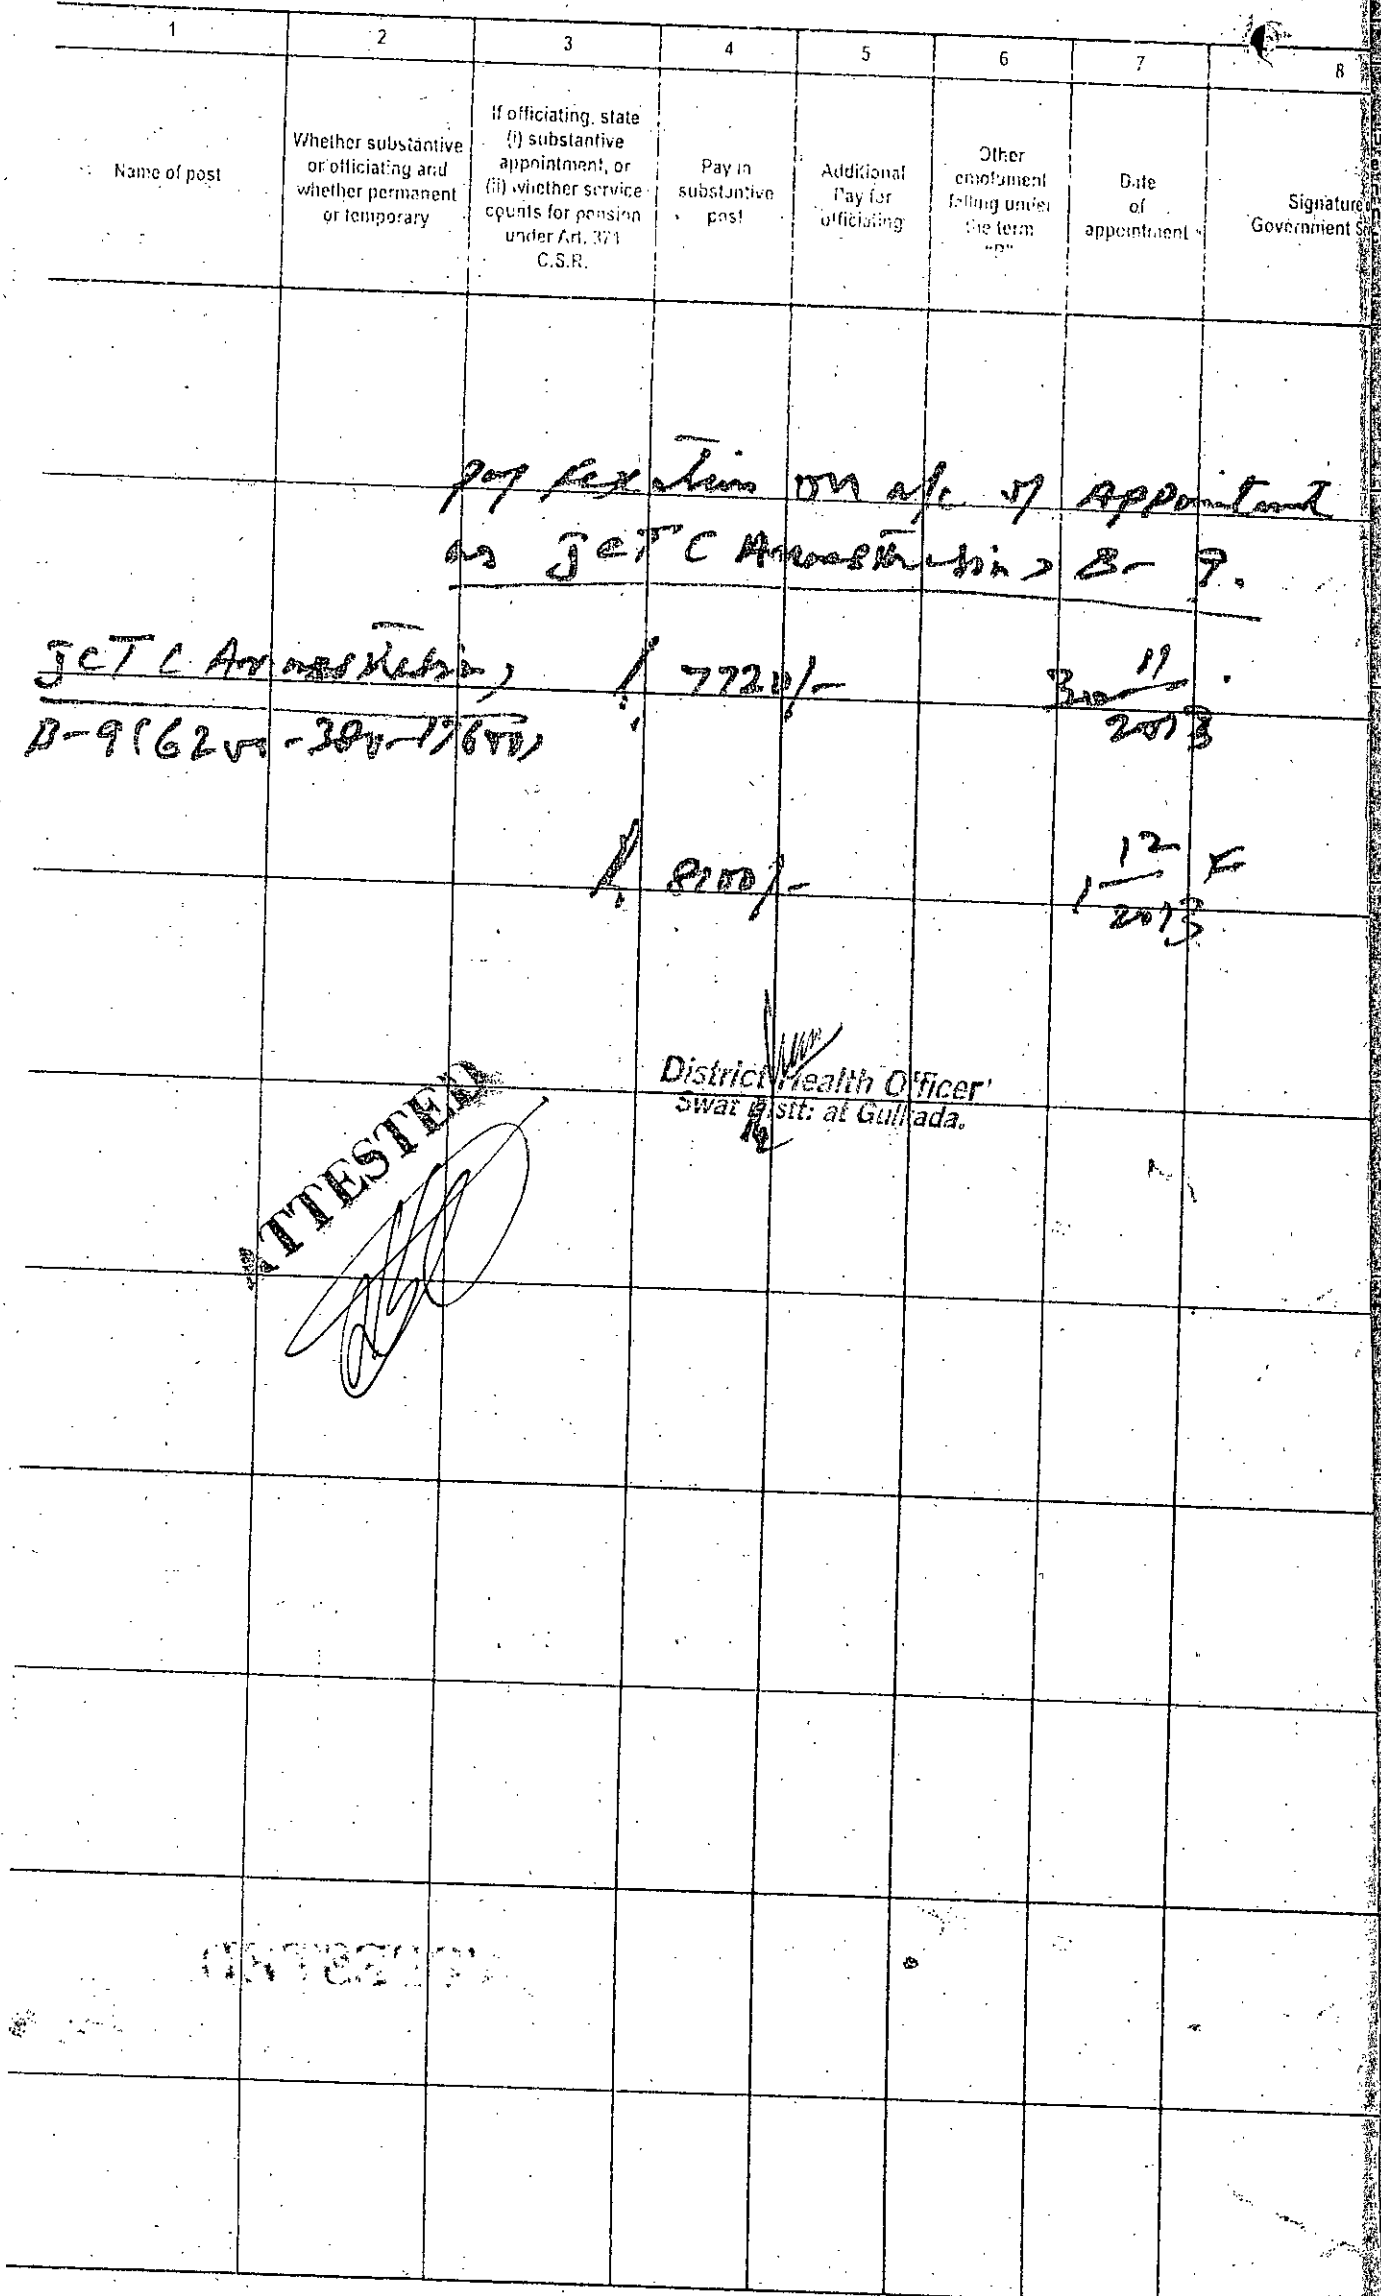 1 2 3 4 5 6 7 8
Name of post
Whether substantive
or officiating and
whether permanent
or temporary
If officiating, state
(i) substantive
appointment, or
(ii) whether service
counts for pension
under Art. 371
C.S.R.
Pay in
substantive
post
Additional
Pay for
officiating
Other
emolument
falling under
the term
Date
of
appointment
Signature
Government
pay fixation on a/c of Appointment
as JCT C B-9.
JCT C
B-9 (6200-380-17600)
7720/-
30 11
2013
8100/-
1 12
2013
District Health Officer
Swat Distt: at Gulkada.
ATTESTED